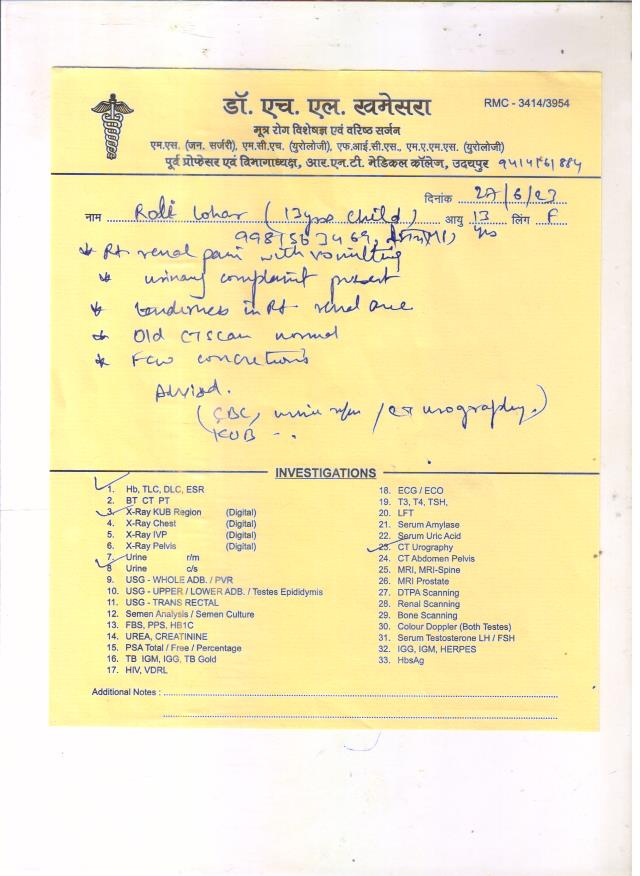 डॉ. एच. एल. खमेसरा
RMC - 3414/3954
मूत्र रोग विशेषज्ञ एवं वरिष्ठ सर्जन
एम.एस. (जन. सर्जरी), एम.सी.एच. (युरोलोजी), एफ.आई.सी.एस., एम.ए.एम.एस. (युरोलोजी)
पूर्व प्रोफेसर एवं विभागाध्यक्ष, आर.एन.टी. मेडिकल कॉलेज, उदयपुर
दिनांक 27/6/23
नाम Lohar (13yrs child) आयु 13 yrs लिंग F
* Rt renal pain with vomitting
* urinary complaint present
* tenderness in Rt renal
* Old CT scan normal
* Few concretions
Advised.
(CBC, urine / CT urography.)
KUB
INVESTIGATIONS
1. Hb, TLC, DLC, ESR
2. BT CT PT
3. X-Ray KUB Region (Digital)
4. X-Ray Chest (Digital)
5. X-Ray IVP (Digital)
6. X-Ray Pelvis (Digital)
7. Urine r/m
8 Urine c/s
9. USG - WHOLE ADB. / PVR
10. USG - UPPER / LOWER ADB. / Testes Epididymis
11. USG - TRANS RECTAL
12. Semen Analysis / Semen Culture
13. FBS, PPS, HB1C
14. UREA, CREATININE
15. PSA Total / Free / Percentage
16. TB IGM, IGG, TB Gold
17. HIV, VDRL
18. ECG / ECO
19. T3, T4, TSH,
20. LFT
21. Serum Amylase
22. Serum Uric Acid
23. CT Urography
24. CT Abdomen Pelvis
25. MRI, MRI-Spine
26. MRI Prostate
27. DTPA Scanning
28. Renal Scanning
29. Bone Scanning
30. Colour Doppler (Both Testes)
31. Serum Testosterone LH / FSH
32. IGG, IGM, HERPES
33. HbsAg
Additional Notes :